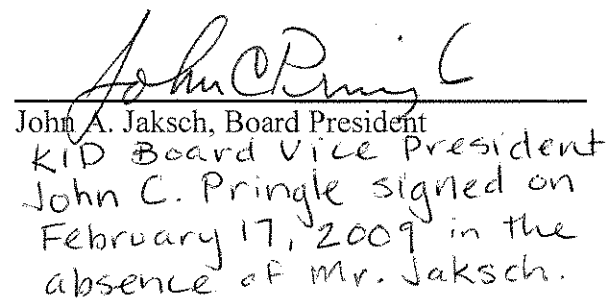 John C Pringle
John A. Jaksch, Board President
KID Board Vice President
John C. Pringle signed on
February 17, 2009 in the
absence of Mr. Jaksch.